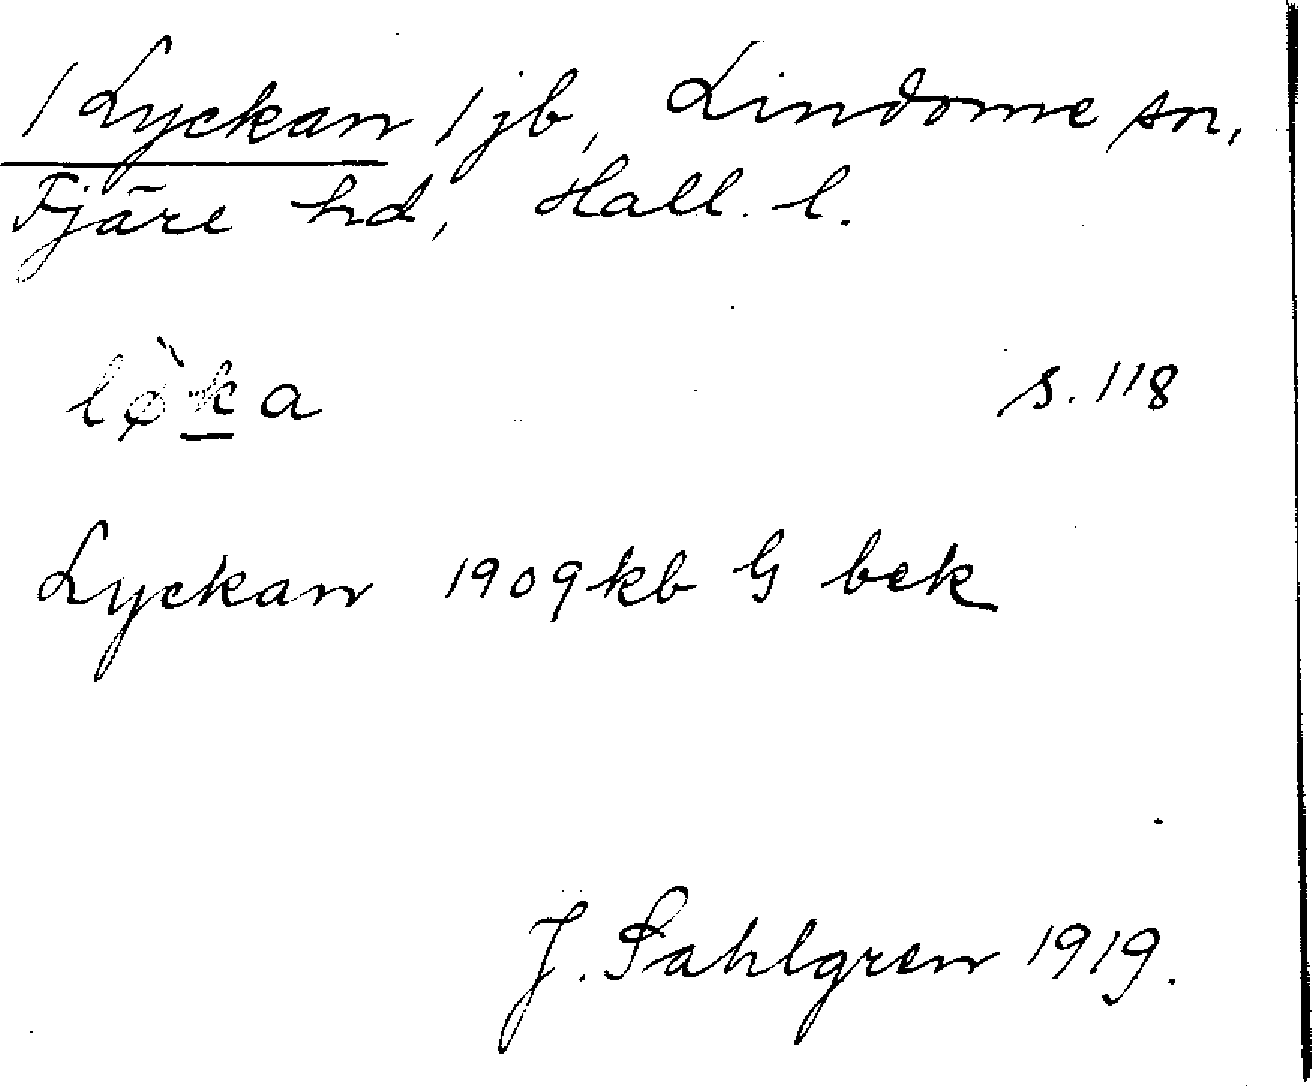 1 Lyckan 1 jb, Lindome sn,
Fjäre hd, Hall. l.
lø̀ka s. 118
Lyckan 1909 kb G bek
J. Sahlgren 1919.